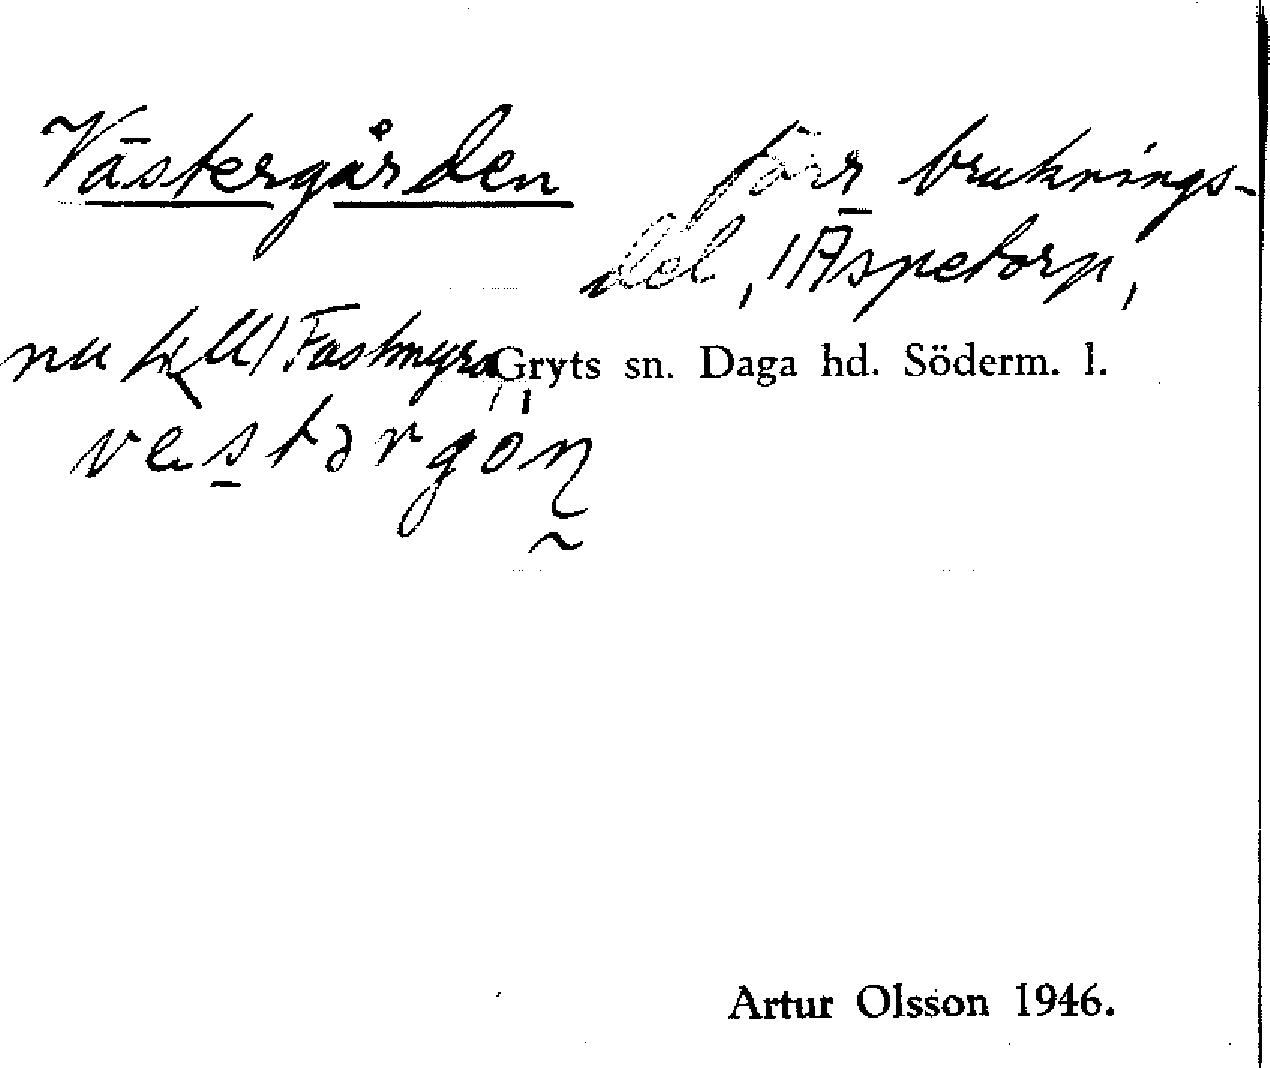 Västergården förr bruknings-
del, i Äspetorp,
nu till Fastmyra
Gryts sn. Daga hd. Söderm. l.
Artur Olsson 1946.